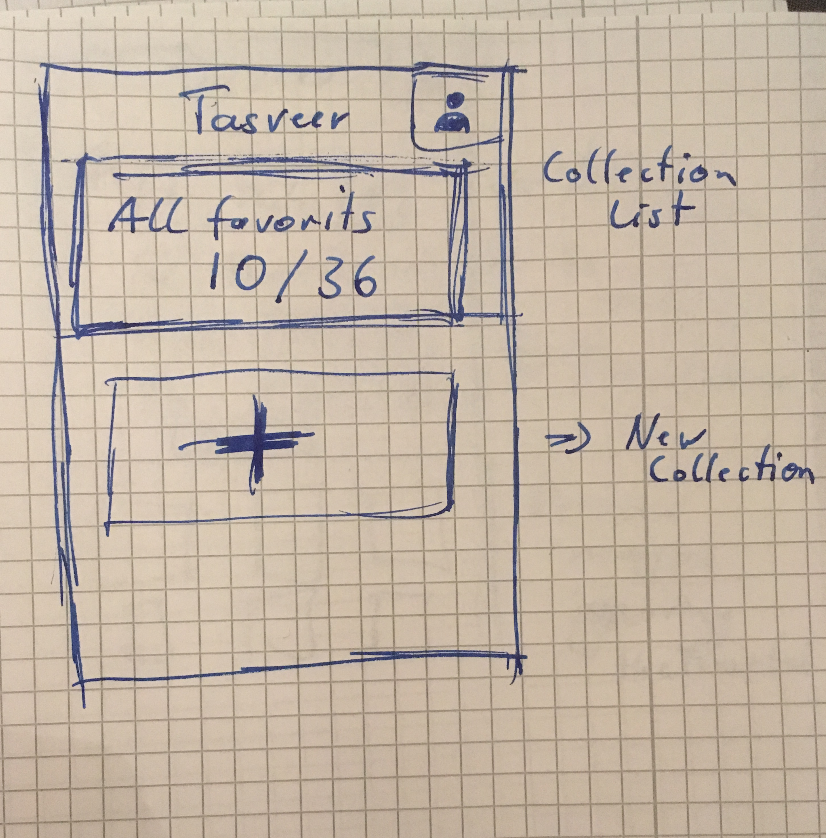 Tasveer
All favorits
10/36
Collection
List
+
=> New
Collection